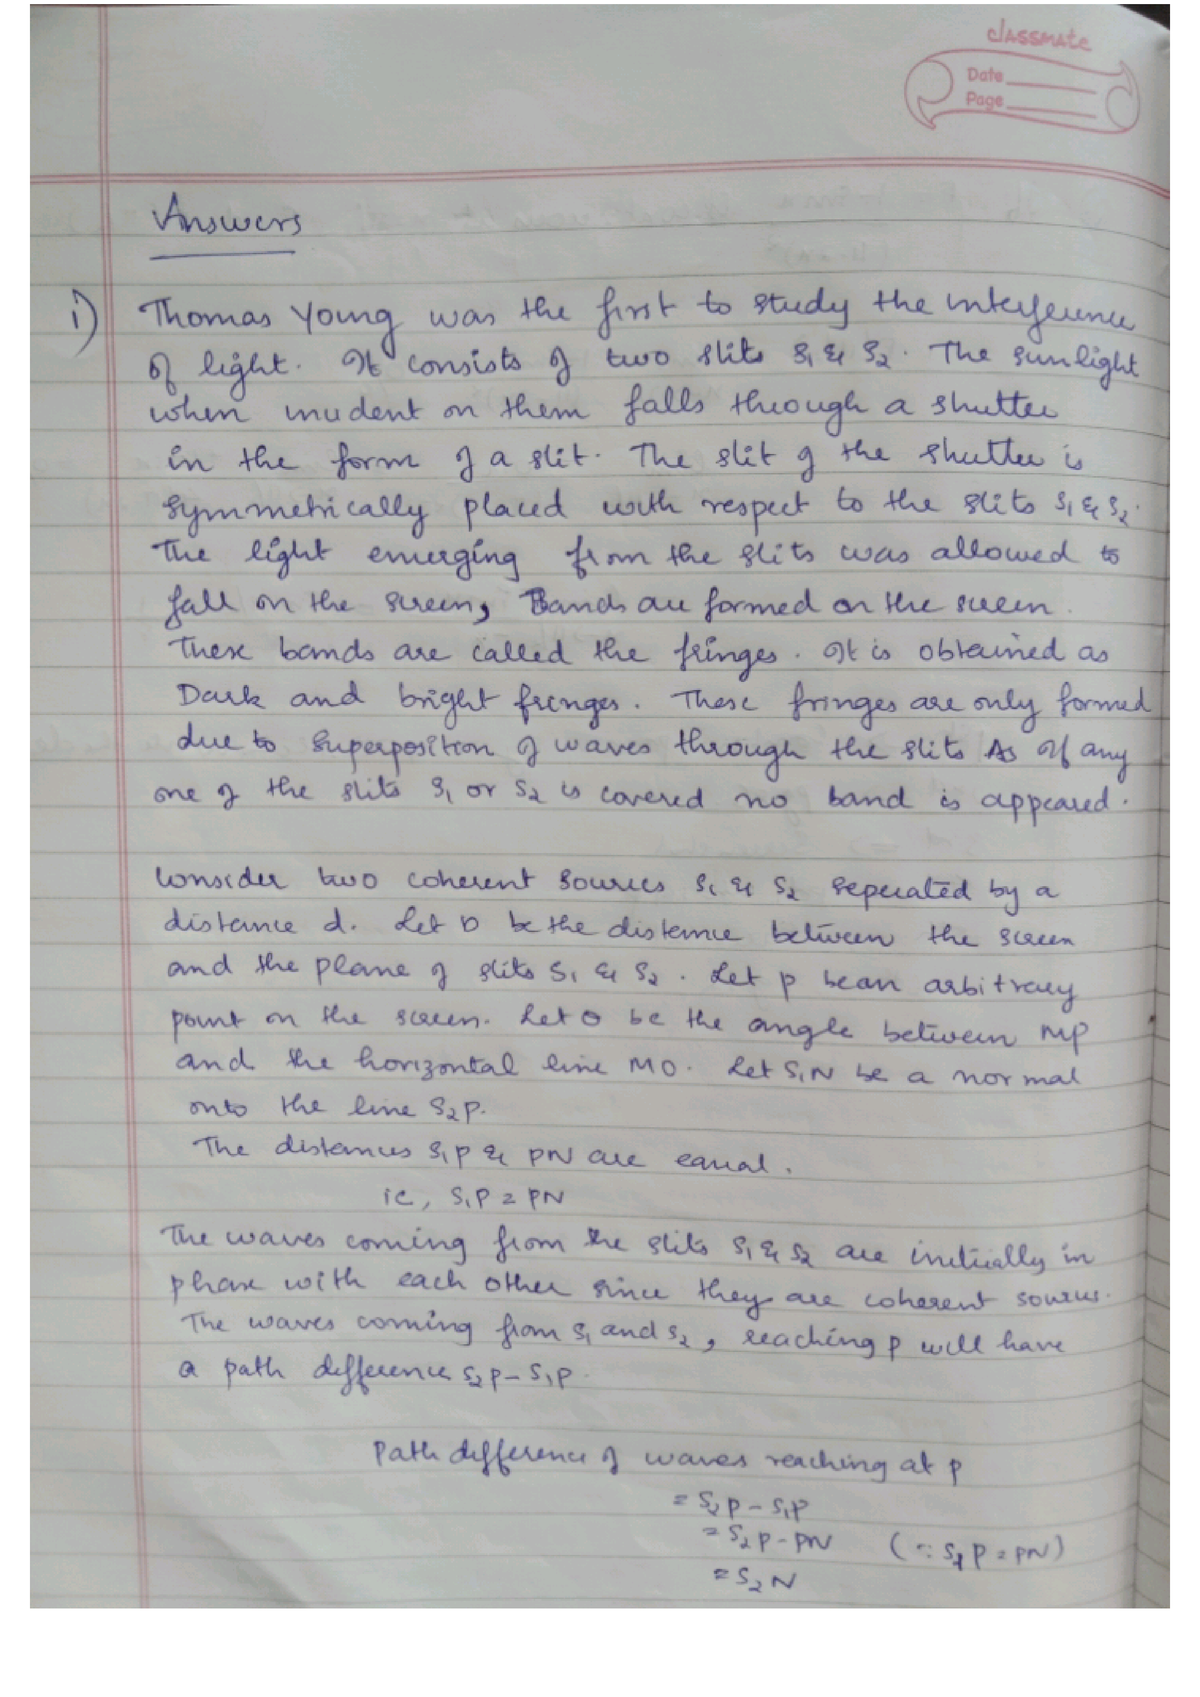 classmate
Date
Page
Answers
1) Thomas Young was the first to study the interference
of light. It consists of two slits S1 & S2. The sunlight
when incident on them falls through a shutter
in the form of a slit. The slit of the shutter is
symmetrically placed with respect to the slits S1 & S2.
The light emerging from the slits was allowed to
fall on the screen, Bands are formed on the screen.
These bands are called the fringes. It is obtained as
Dark and bright fringes. These fringes are only formed
due to superposition of waves through the slits As if any
one of the slits S1 or S2 is covered no band is appeared.
Consider two coherent sources S1 & S2 seperated by a
distance d. Let D be the distance between the screen
and the plane of slits S1 & S2. Let P be an arbitrary
point on the screen. Let θ be the angle between MP
and the horizontal line MO. Let S1N be a normal
onto the line S2P.
The distances S1P & PN are equal.
ie, S1P = PN
The waves coming from the slits S1 & S2 are initially in
phase with each other since they are coherent sources.
The waves coming from S1 and S2, reaching P will have
a path difference S2P - S1P.
Path difference of waves reaching at P
= S2P - S1P
= S2P - PN (∵ S1P = PN)
= S2N